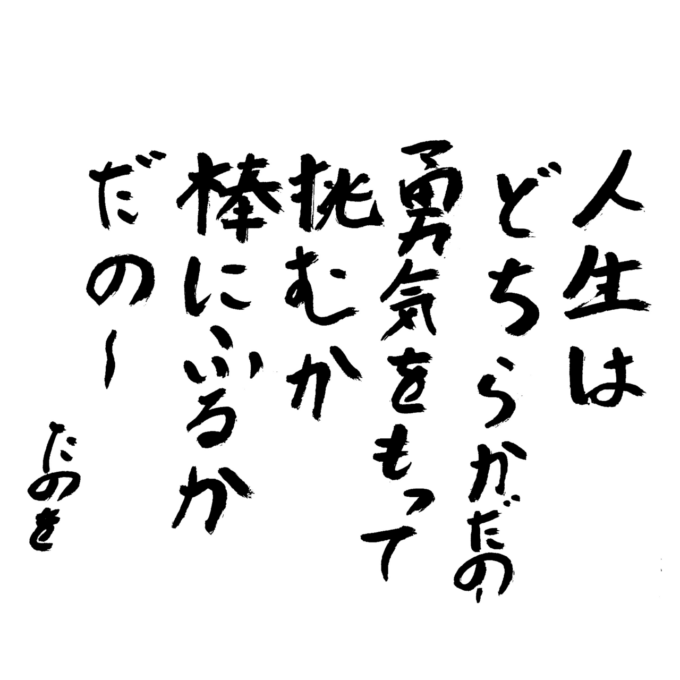 人生は
どちらかだのー
勇気をもって
挑むか
棒にふるか
だのー
たのを